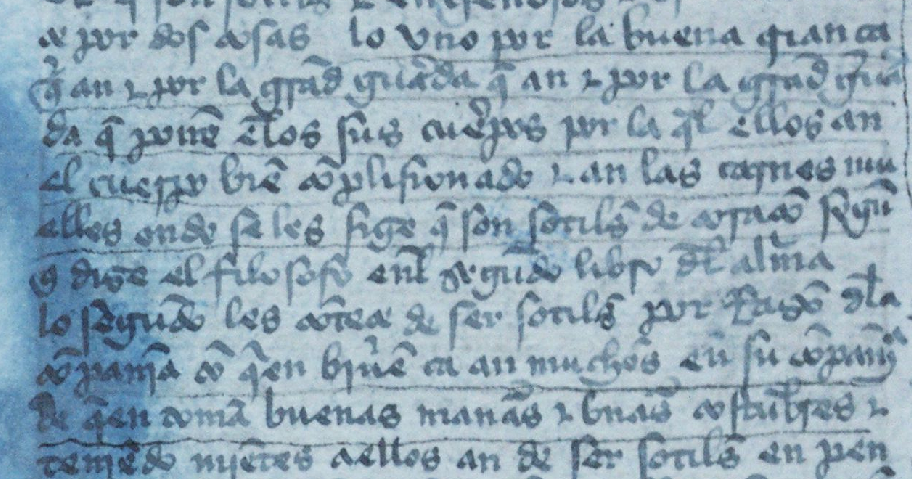 ce por dos cosas lo vno por la buena criança
q̄ an ⁊ por la grãd guarda q̄ an ⁊ por la grãd gua
da q̄ ponẽ ẽlos sus cuerpos por la q̃l ellos an
el cuerpo biẽ cõplisionado ⁊ an las carnes mu
elles onde se les sige q̄ son sotiles de coraçõ segũ
q̄ dize el filosofo enl segũdo libro dl alma
lo segũdo les cõteçe de ser sotiles por rrazõ dla
cõpania cõ q̃en biuẽ ca an muchos en su cõpania
de q̃en tomã buenas manãs ⁊ bnãs costũbres ⁊
teniẽdo miẽtes aellos an de ser sotiles en pen